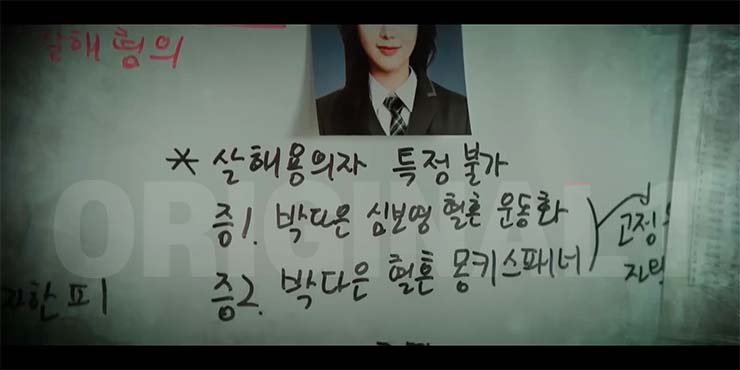 살해 혐의
* 살해용의자 특정불가
증1. 박다은 심보영 혈흔 운동화
증2. 박다은 혈흔 몽키스패너
고정
ORIGINAL